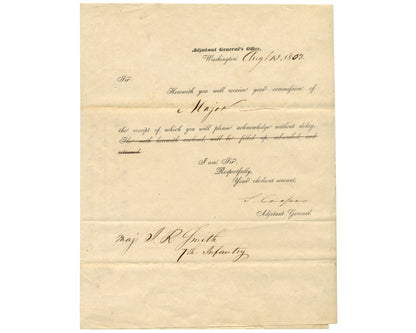 Adjutant General's Office,
Washington, Aug 1852
Sir
Herewith you will receive your commission of
Major
the receipt of which you will please acknowledge without delay.
The oath herewith enclosed, will be filled up, subscribed, and
returned.
I am Sir,
Respectfully,
Your obedient servant,
S. Cooper
Adjutant General.
Maj J. R. Smith
7th Infantry